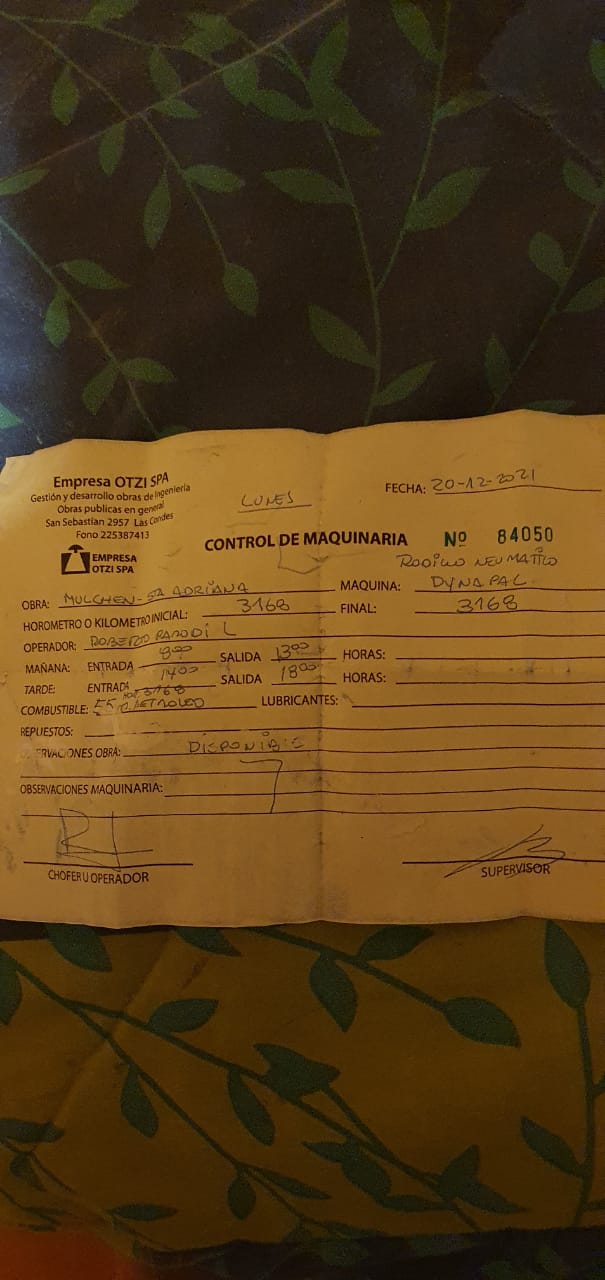 Empresa OTZI SPA
Gestión y desarrollo obras de Ingeniería
Obras publicas en general
San Sebastian 2957 Las Condes
Fono 225387413
EMPRESA
OTZI SPA
LUNES
FECHA: 20-12-2021
CONTROL DE MAQUINARIA Nº 84050
RODILLO NEUMATICO
OBRA: MULCHEN-STA ADRIANA MAQUINA: DYNAPAC
HOROMETRO O KILOMETRO INICIAL: 3168 FINAL: 3168
OPERADOR: ROBERTO PARODI L
MAÑANA: ENTRADA 8:00 SALIDA 13:00 HORAS:
TARDE: ENTRADA 14:00 SALIDA 18:00 HORAS:
3168
COMBUSTIBLE: 55 PETROLEO LUBRICANTES:
REPUESTOS:
RVACIONES OBRA: DISPONIBLE
OBSERVACIONES MAQUINARIA:
CHOFER U OPERADOR
SUPERVISOR